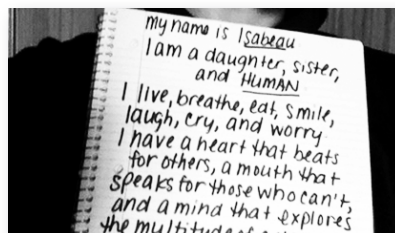 my name is Isabeau
I am a daughter, sister,
and HUMAN
I live, breathe, eat, smile,
laugh, cry, and worry
I have a heart that beats
for others, a mouth that
speaks for those who can't,
and a mind that explores
the multitude of